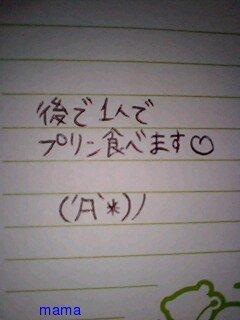 後で1人で
プリン食べます♡
(´Д`*)ﾉ
mama